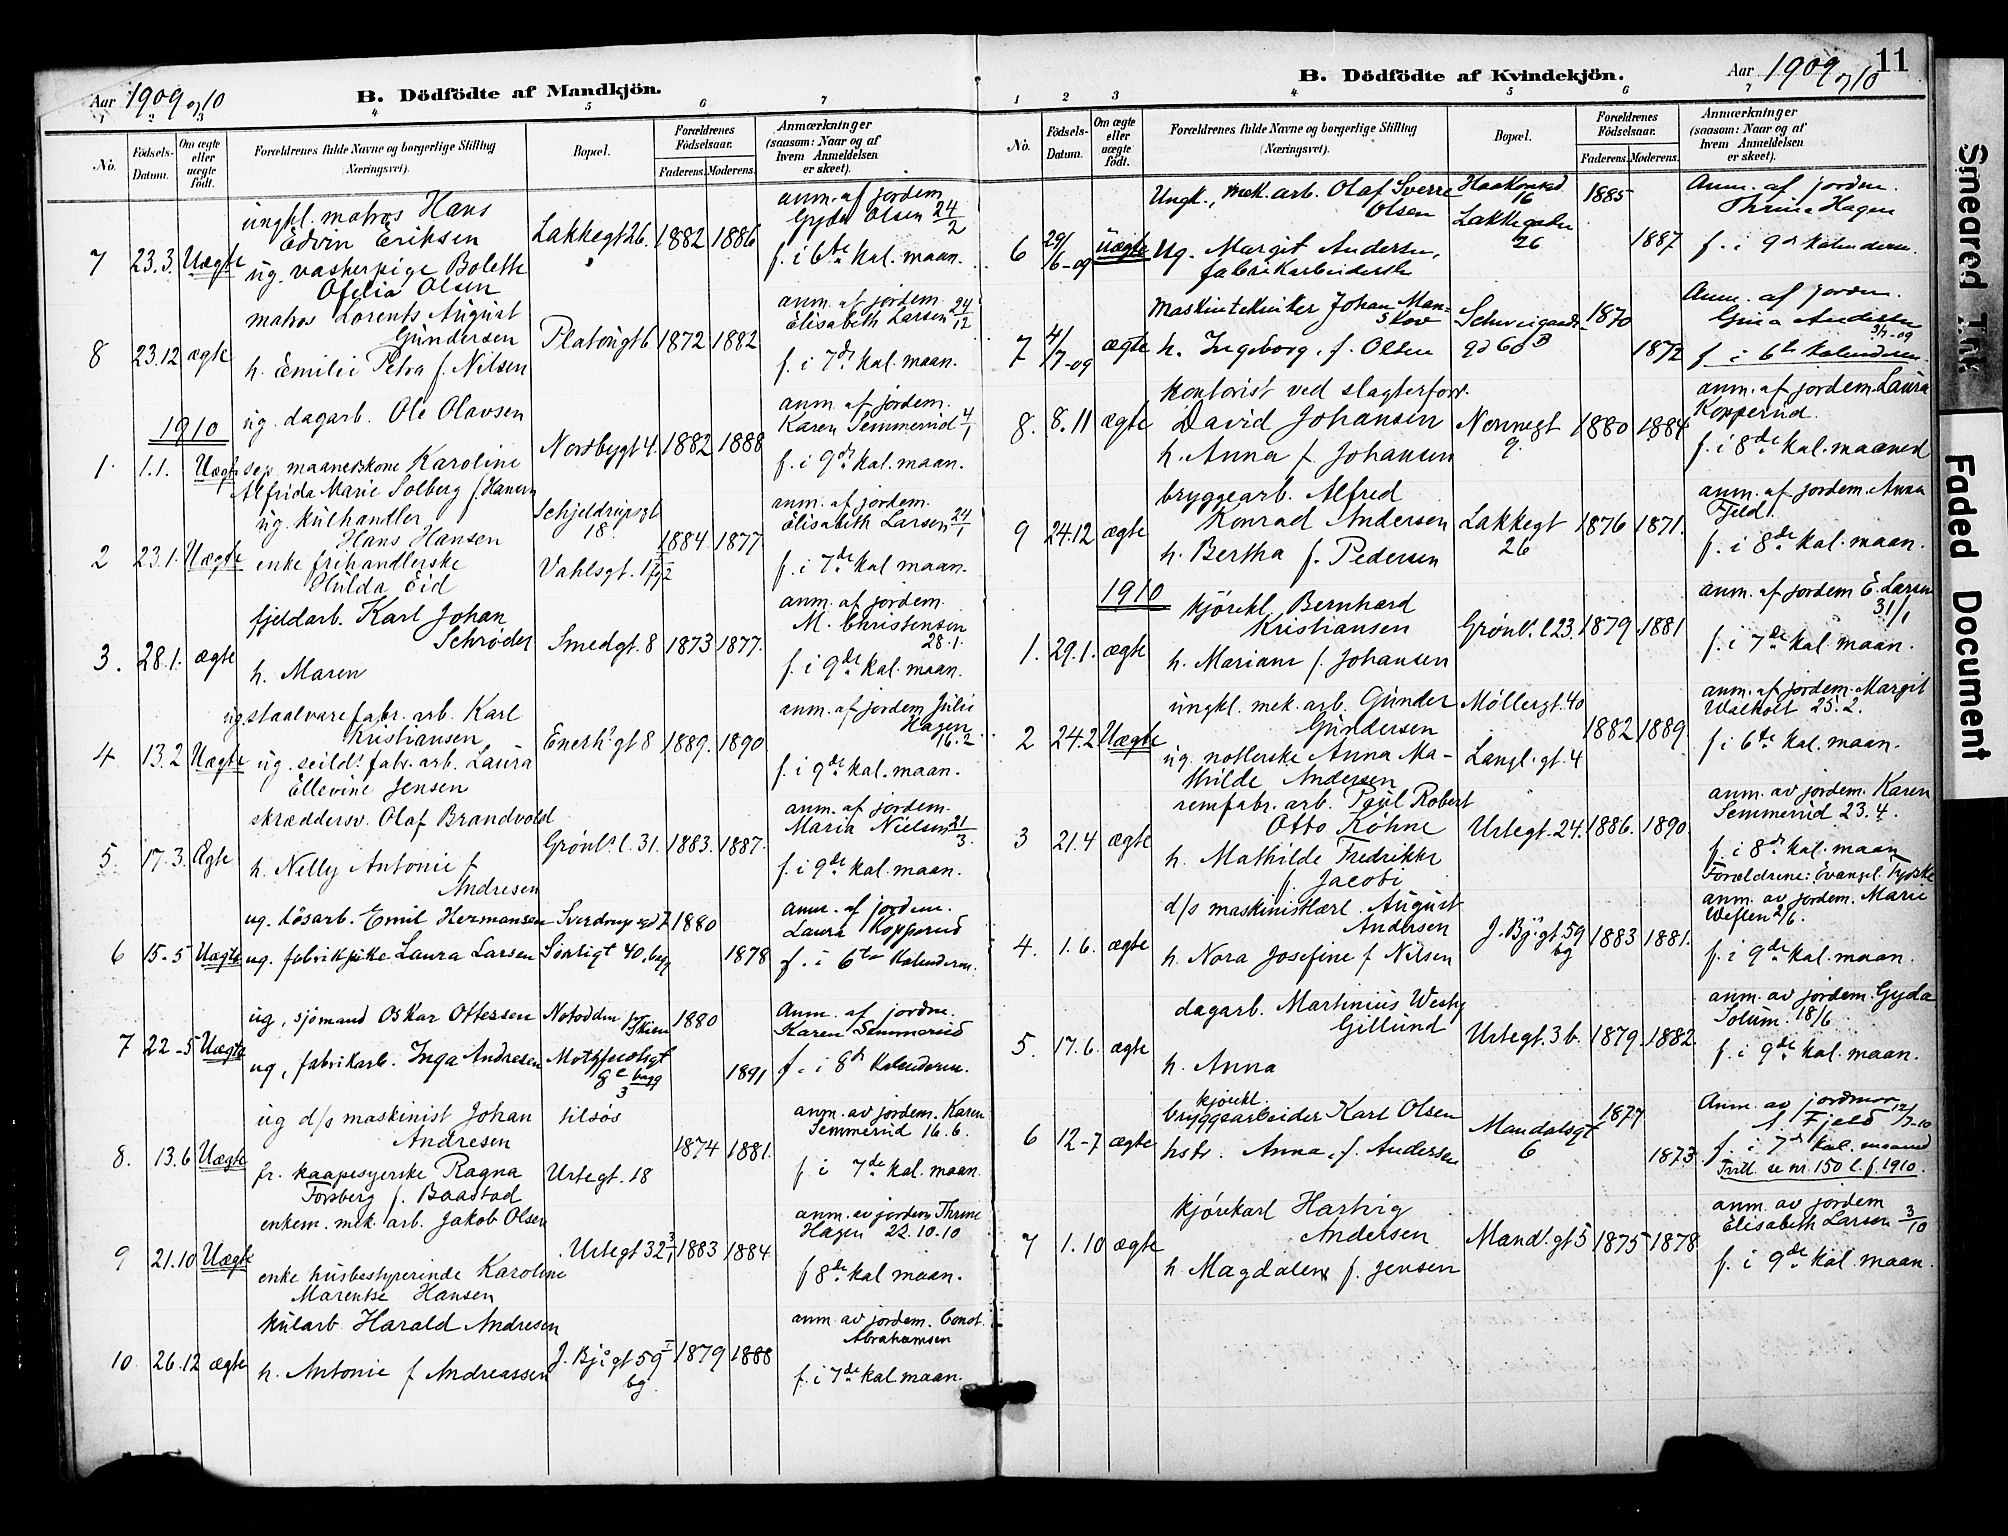 Aar 1909 og 10
B. Dödfödte af Mandkjön.
1 2 3 4 5 6 7
No.
Födsels-
Datum.
Om ægte
eller
uægte
födt.
Forældrenes fulde Navne og borgerlige Stilling
(Næringsvei).
Bopæl.
Forældrenes
Födselsaar.
Faderens. Moderens.
Anmærkninger
(saasom: Naar og af
hvem Anmeldelsen
er skeet).
7 23.3 Uægte
ungkl. matros Hans
Edvin Eriksen
ug. vaskerpige Bolette
Ofelia Olsen
Lakkegt 26. 1882 1886
anm. af jordem.
Gyda Olsen 24/2
f. i 6te kal. maan.
8 23.12 ægte
matros Lorents August
Gundersen
h. Emilie Petra f. Nilsen
Platougt 6 1872 1882
anm. af jordem.
Elisabeth Larsen 24/12
f. i 7de kal. maan.
1910
1. 1.1. Uægte
ug. dagarb. Ole Olavsen
sep. maanedskone Karoline
Alfrida Marie Solberg f. Hansen
Nordbygt 4. 1882 1888
anm. af jordem.
Karen Semmerud 4/1
f. i 9de kal. maan.
2 23.1. Uægte
ug. kulhandler
Hans Hansen
enke frihandlerske
Hulda Eid
Schjeldrupsgt
18.
Vahlsgt. 1
1884 1877
anm. af jordem.
Elisabeth Larsen 24/1
f. i 7de kal maan.
3. 28.1. ægte
fjeldarb. Karl Johan
Schrøder
h. Maren
Smedgt. 8 1873 1877.
anm. af jordem.
M. Christensen
28.1.
f. i 9de kal. maan.
4 13.2 Uægte
ug staalvarefabr. arb. Karl
Kristiansen
ug. seild. fabr. arb. Laura
Ellevine Jensen
Enerh. gt 8 1889. 1890
anm. af jordem Julie
Hagen
16.2.
f. i 9de kal. maan.
5. 17.3. Ægte
skræddersv. Olaf Brandvold
h. Nelly Antonie f.
Andresen
Grønl. l. 31. 1883. 1887.
anm. af jordem.
Maria Nielsen 21/3.
f. i 9de kal. maan.
6 15-5 Uægte
ug. løsarb. Emil Hermansen
ug. fabrikpike Laura Larsen
Sverdrupsgd 7 1880
1878
anm. af jordem.
Laura Kopperud
f. i 6te kalenderm.
7 22-5 Uægte
ug, sjømand Oskar Ottersen
ug, fabrikarb. Inga Andresen
Notodden pr Skien 1880
1891
Anm. af jordm.
Karen Semmerud
f. i 8de kalenderm.
8. 13.6 Uægte
ug d/s maskinist Johan
Andresen
fr. kaapesyerske Ragna
Forsberg f. Baastad
tilsøs
Urtegt. 18
1874 1881.
anm. av jordem. Karen
Semmerud 16.6.
f. i 7de kal. maan.
9 21.10 Uægte
enkem. mek. arb. Jakob Olsen
enke husbestyrerinde Karoline
Marentse Hansen
Urtegt 32 1883 1884
anm. av jordem Thrine
Hagen 22.10.10
f 8de kal maan.
10 26.12 ægte
kularb. Harald Andresen
h. Antonie f Andreassen
J. Bj. gt 59 I
bg.
1879 1888
anm. av jordem. Const.
Abrahamsen
f. i 7de kal maan.
11
Aar 1909 og 10
B. Dödfödte af Kvindekjön.
1 2 3 4 5 6 7
No.
Födsels-
Datum.
Om ægte
eller
uægte
födt.
Forældrenes fulde Navne og borgerlige Stilling
(Næringsvei).
Bopæl.
Forældrenes
Födselsaar.
Faderens. Moderens.
Anmærkninger
(saasom: Naar og af
hvem Anmeldelsen
er skeet).
6 29/6-09 Uægte
Ungk., mek. arb. Olaf Sverre
Olsen
Ug. Margit Andersen,
fabrikarbeiderske
16
Lakkegaden
26
1885
1887
Anm. af jordm.
Thrine Hagen
f. i 9de kalenderm.
7 4/7-09 ægte
Maskintekniker Johan Man-
skov
h. Ingeborg, f. Olsen
Schweigaards-
gd 60 B
1870
1872
Anm. af jordm.
Gina Andersen
f i 6te kalenderm.
8. 8.11 ægte
kontorist ved slagterforr.
David Johansen
h. Anna f. Johansen
Nonnegt
9.
1880 1884
anm. af jordem. Laura
Kopperud.
f. i 8de kal. maaned
9 24.12 ægte
bryggearb. Alfred
Konrad Andersen
h. Bertha f. Pedersen
Lakkegt
26
1876 1871.
anm. af jordem. Anna
Fjeld.
f. i 8de kal. maan.
1910
1. 29.1. ægte
kjørekl Bernhard
Kristiansen
h. Mariane f. Johansen
Grønl. l 23. 1879 1881
anm. af jordem E. Larsen
31/1
f. i 7de kal. maan.
2 24.2 Uægte
ungkl. mek. arb. Gunder
Gundersen
ug. notlerske Anna Ma-
thilde Andersen
Møllergt. 40
Langl. gt. 4
1882 1889.
anm. af jordem. Margit
Walholt 25.2.
f i 6te kal. maan.
3 21.4 ægte
remfabr. arb. Paul Robert
Otto Køhne
h. Mathilde Fredrikke
f. Jacobi
Urtegt. 24. 1886. 1890.
anm. av jordem. Karen
Semmerud 23.4.
f. i 8de kal. maan
Forældrene: Evangl. Tydske
4. 1.6. ægte
d/s maskinist Karl August
Andersen
h. Nora Josefine f Nilsen
J. Bj. gt. 59
bg
1883 1881.
anm. av jordem. Marie
Weflen 2/6.
f. i 9de kal. maan.
5. 17.6. ægte
dagarb. Martinius Westy
Gillund
h. Anna
Urtegt. 3 b. 1879. 1882.
anm. av jordem. Gyda
Solum. 18/6
f. i 9de kal. maan.
6 12-7 ægte
kjørekl.
bryggearbeider Karl Olsen
hstr. Anna, f. Andersen
Mandalsgt.
6
1877
1873
Anm. av jordmor
A Fjeld 12/7-10
f. i 7de kal. maaned
Tvill. se nr. 150 l. f. 1910.
7 1.10 ægte
kjørekarl Hartvig
Andersen
h Magdalene f. Jensen
Mand. gt 5 1875 1878
anm. av jordem
Elisabeth Larsen 3/10
f. i 9de kal. maan.
Smeared Ink
Faded Document